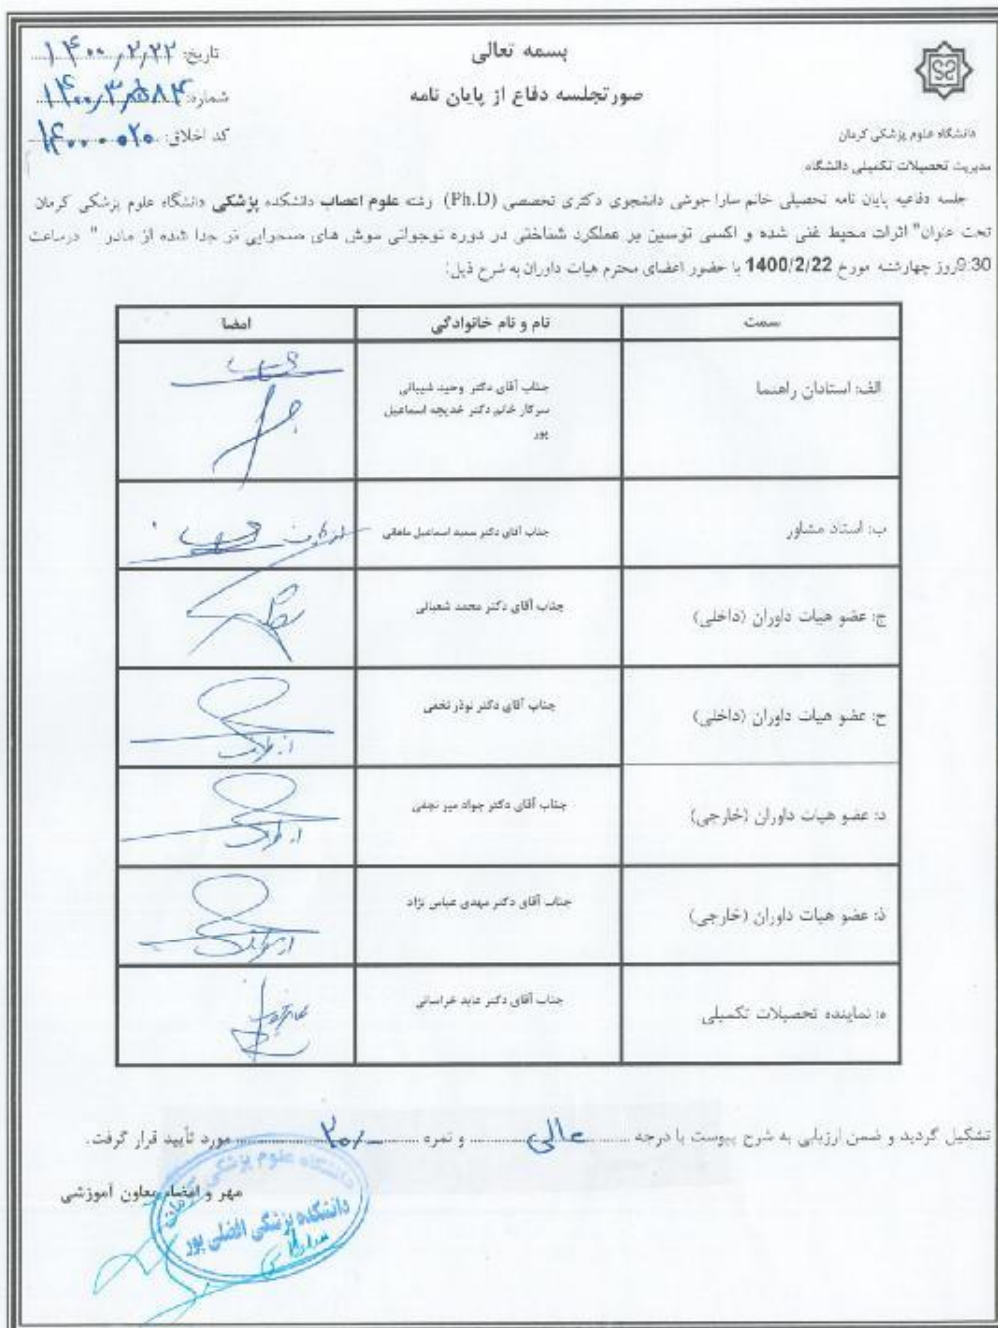 بسمه تعالی
صورتجلسه دفاع از پایان نامه
تاریخ: ۱۴۰۰,۲,۲۲
شماره:
کد اخلاق: ۱۴۰۰۰۰۲۰
دانشگاه علوم پزشکی کرمان
مدیریت تحصیلات تکمیلی دانشگاه
جلسه دفاعیه پایان نامه تحصیلی خانم سارا جوشی دانشجوی دکتری تخصصی (Ph.D) رشته علوم اعصاب دانشکده پزشکی دانشگاه علوم پزشکی کرمان
تحت عنوان" اثرات محیط غنی شده و اکسی توسین بر عملکرد شناختی در دوره نوجوانی موش های صحرایی نر جدا شده از مادر " درساعت
9:30روز چهارشنبه مورخ 1400/2/22 با حضور اعضای محترم هیات داوران به شرح ذیل:
سمت نام و نام خانوادگی امضا
الف: استادان راهنما جناب آقای دکتر وحید شیبانی
سرکار خانم دکتر خدیجه اسماعیل
پور
ب: استاد مشاور جناب آقای دکتر سعید اسماعیل ماهانی
ج: عضو هیات داوران (داخلی) جناب آقای دکتر محمد شعبانی
ح: عضو هیات داوران (داخلی) جناب آقای دکتر نوذر نخعی
د: عضو هیات داوران (خارجی) جناب آقای دکتر جواد میر نجفی
ذ: عضو هیات داوران (خارجی) جناب آقای دکتر مهدی عباس نژاد
ه: نماینده تحصیلات تکمیلی جناب آقای دکتر عابد خراسانی
تشکیل گردید و ضمن ارزیابی به شرح پیوست با درجه عالی و نمره ۲۰/- مورد تأیید قرار گرفت.
مهر و امضاء معاون آموزشی
دانشگاه علوم پزشکی کرمان
دانشکده پزشکی افضلی پور